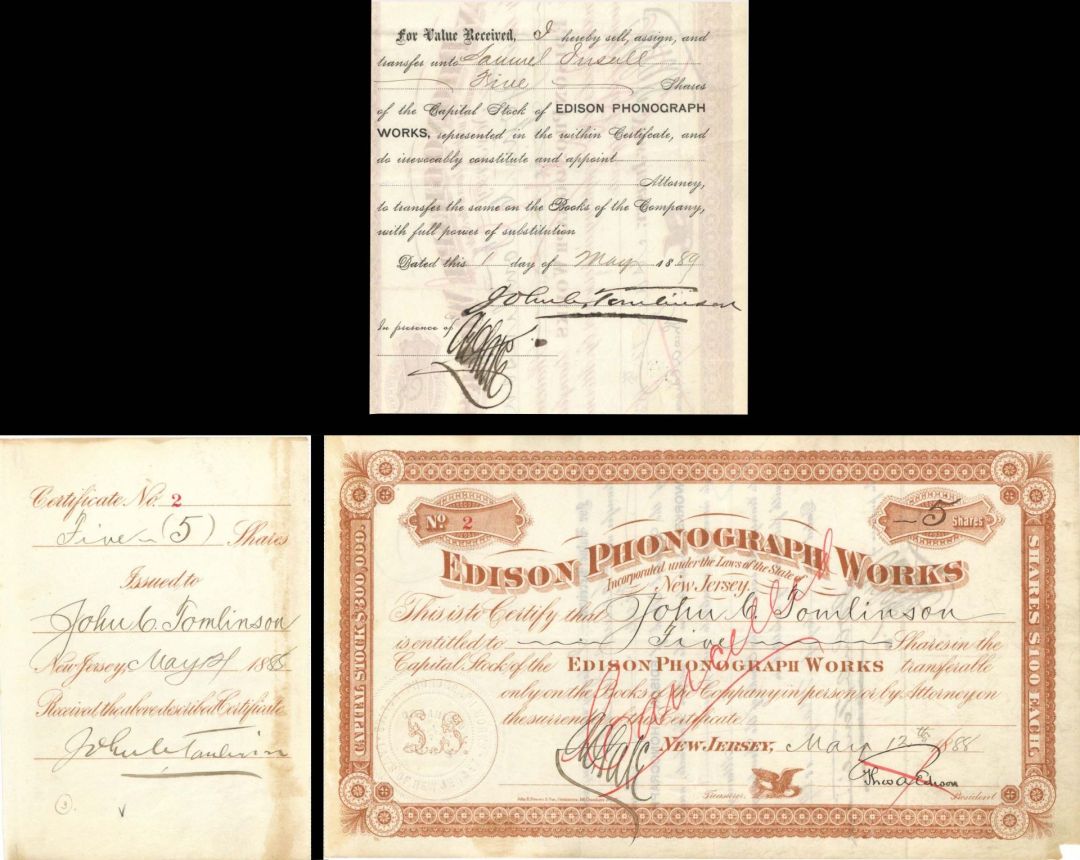 For Value Received, I hereby sell, assign, and
transfer unto Samuel Insull
Five Shares
of the Capital Stock of EDISON PHONOGRAPH
WORKS, represented in the within Certificate, and
do irrevocably constitute and appoint
Attorney,
to transfer the same on the Books of the Company,
with full power of substitution
Dated this 1 day of May 1889
John C. Tomlinson
In presence of
Certificate No. 2
Five (5) Shares
Issued to
John C. Tomlinson
New Jersey, May 1888
Received the above described Certificate
John C. Tomlinson
3
No. 2
5 Shares
EDISON PHONOGRAPH WORKS
Incorporated under the Laws of the State of
New Jersey.
This is to Certify that John C. Tomlinson
is entitled to Five Shares in the
Capital Stock of the EDISON PHONOGRAPH WORKS transferable
only on the Books of the Company in person or by Attorney on
the surrender of this Certificate
Cancelled
NEW-JERSEY, May 12th 1888
Thos A Edison
Treasurer President
CAPITAL STOCK $300,000.
SHARES $100 EACH.